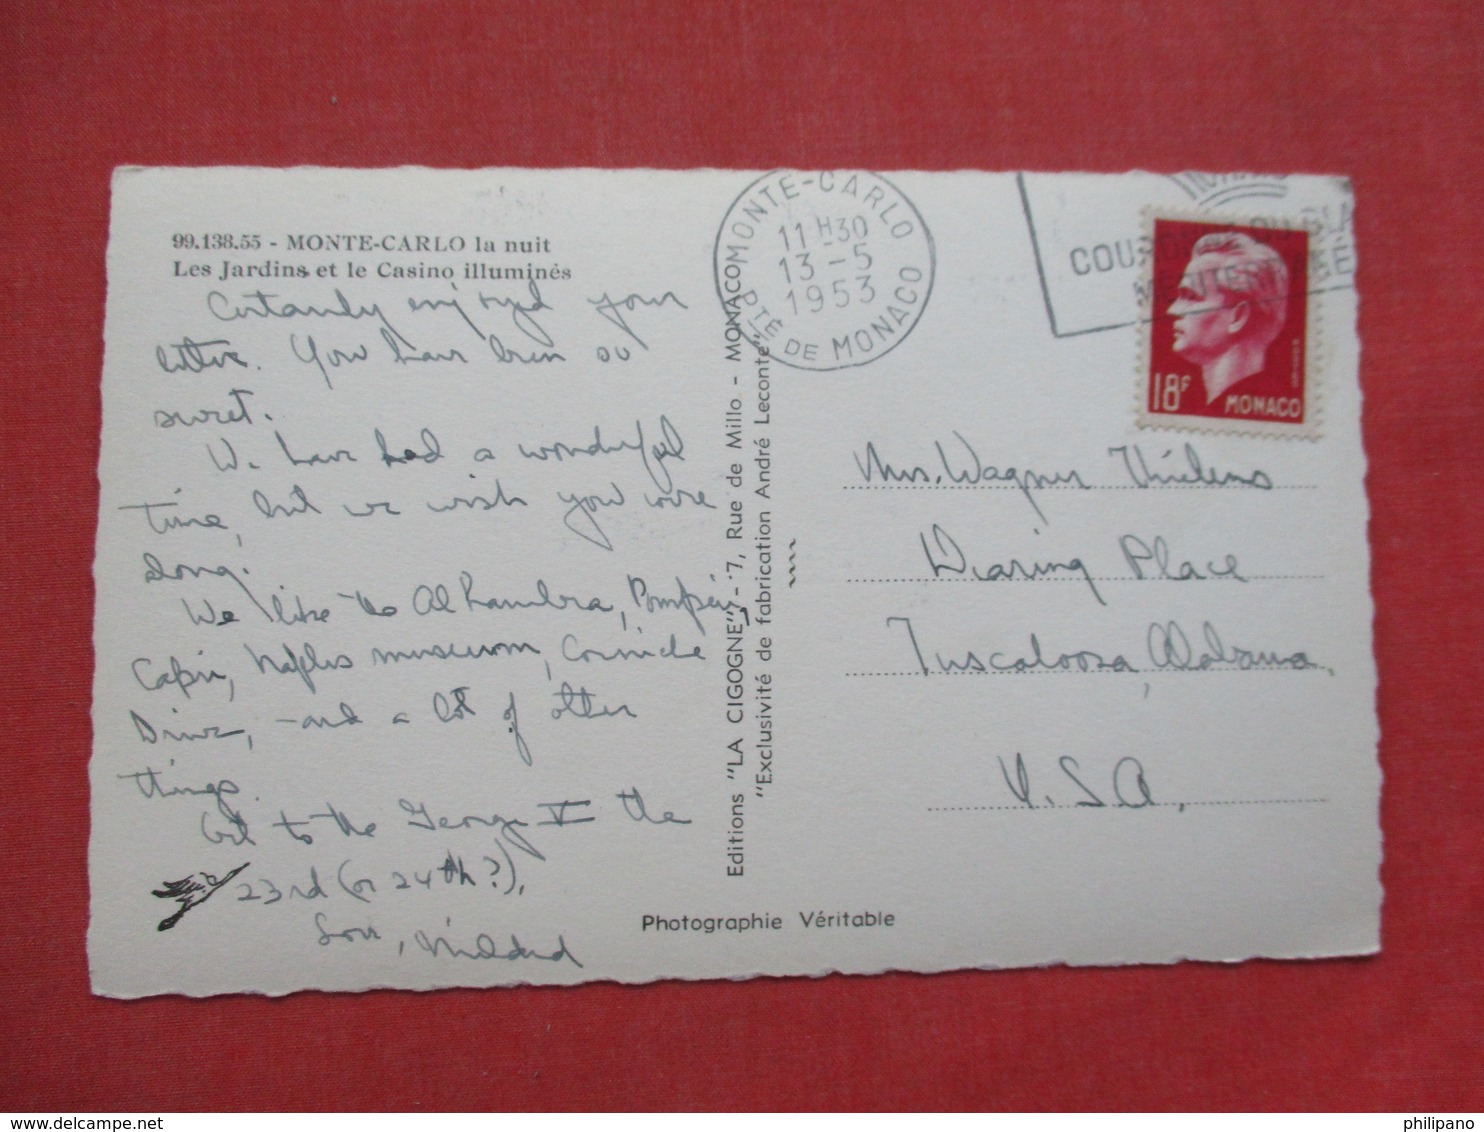 99.138.55 - MONTE-CARLO la nuit
Les Jardins et le Casino illuminés
Certainly enjoyed your
letter. You have been so
sweet.
We have had a wonderful
time, but we wish you were
along.
We like the Alhambra, Pompeii,
Capri, Naples museum, Corniche
Drive, - and a lot of other
things.
Get to the George V the
23rd (or 24th?),
Love, Mildred
Editions "LA CIGOGNE" - 7, Rue de Millo - MONACO
"Exclusivité de fabrication André Leconte"
Photographie Véritable
MONTE-CARLO
11 H 30
13 - 5
1953
PTÉ DE MONACO
18F
MONACO
Mrs. Wagner Thielens
Dearing Place
Tuscaloosa, Alabama,
U.S.A.
philipano
delcampe.net